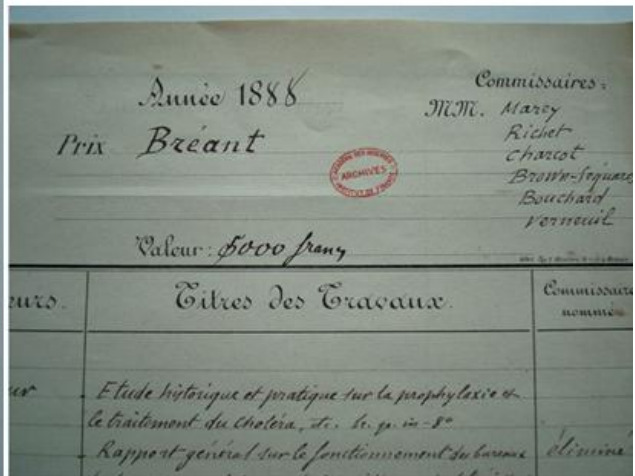 Année 1888
Prix Bréant
Valeur: 5000 francs
Commissaires:
MM. Marey
Richet
Charcot
Brown-Sequard
Bouchard
Verneuil
ACADÉMIE DES SCIENCES
ARCHIVES
INSTITUT DE FRANCE
eurs.
Titres des Travaux.
Commissaires
nommés
ur
Etude historique et pratique sur la prophylaxie et
le traitement du choléra, etc. br. gr. in-8°
Rapport général sur le fonctionnement des bureaux
éliminé